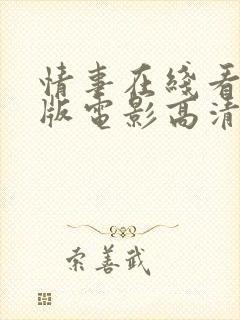 情事在綫看
版電影高清
索善武